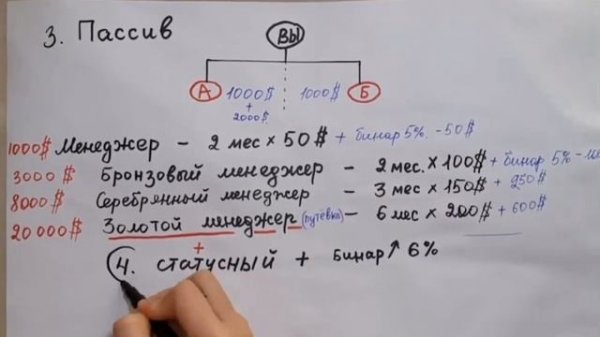 3. Пассив
ВЫ
А 1000$ + 2000$ 1000$ Б
1000$ Менеджер - 2 мес × 50$ + бинар 5% - 50$
3000$ Бронзовый менеджер - 2 мес. × 100$ + бинар 5% -
8000$ Серебрянный менеджер - 3 мес × 150$ +
20 000$ Золотой менеджер (путевка) - 6 мес × 200$ + 600$
+
4. статусный + бинар ↑ 6%